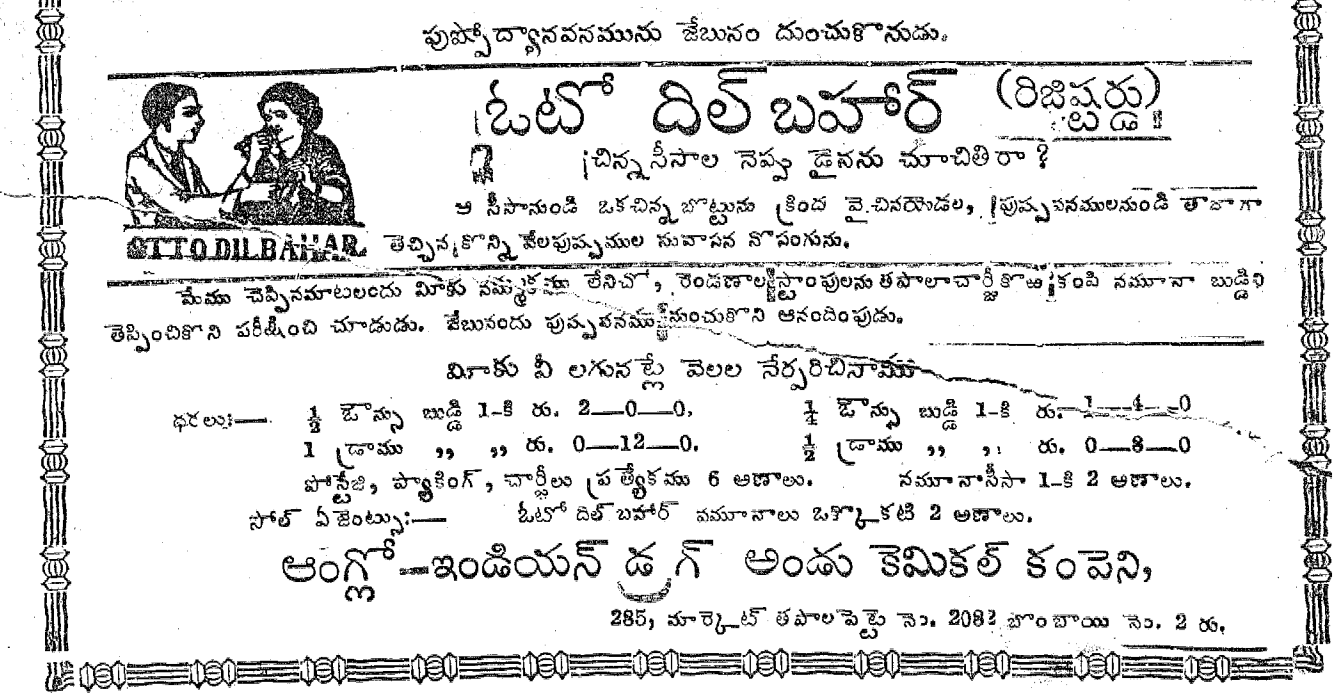 పుష్పోద్యానవనమును జేబునం దుంచుకొనుడు.
ఓటో దిల్ బహార్ (రిజిష్టర్డు)
చిన్న సీసాల నెప్పు డైనను చూచితిరా ?
ఆ సీసానుండి ఒకచిన్న బొట్టును క్రింద వైచినయెడల, పుష్పవనములనుండి తాజాగా
OTTO DILBAHAR. తెచ్చిన కొన్ని వేలపుష్పముల సువాసన నొసంగును.
మేము చెప్పినమాటలందు మీకు నమ్మకము లేనిచో, రెండణాల స్టాంపులను తపాలాచార్జీ కొఱకంపి నమూనా బుడ్డిని
తెప్పించికొని పరీక్షించి చూడుడు. జేబునందు పుష్పవనము నుంచుకొని ఆనందింపుడు.
మీకు వీ లగునట్లే వెలల నేర్పరిచినాము
ధరలు:— ½ ఔన్సు బుడ్డి 1-కి రు. 2—0—0, ¼ ఔన్సు బుడ్డి 1-కి రు. 1—4—0
1 డ్రాము ,, ,, రు. 0—12—0. ½ డ్రాము ,, ,, రు. 0—8—0
పోస్టేజి, ప్యాకింగ్, చార్జీలు ప్రత్యేకము 6 అణాలు. నమూనాసీసా 1-కి 2 అణాలు.
సోల్ ఏజెంట్సు:— ఓటో దిల్ బహార్ నమూనాలు ఒక్కొకటి 2 అణాలు.
ఆంగ్లో-ఇండియన్ డ్రగ్ అండు కెమికల్ కంపెని,
285, మార్కెట్ తపాలపెట్టె నెం. 2082 బొంబాయి నెం. 2 రు.